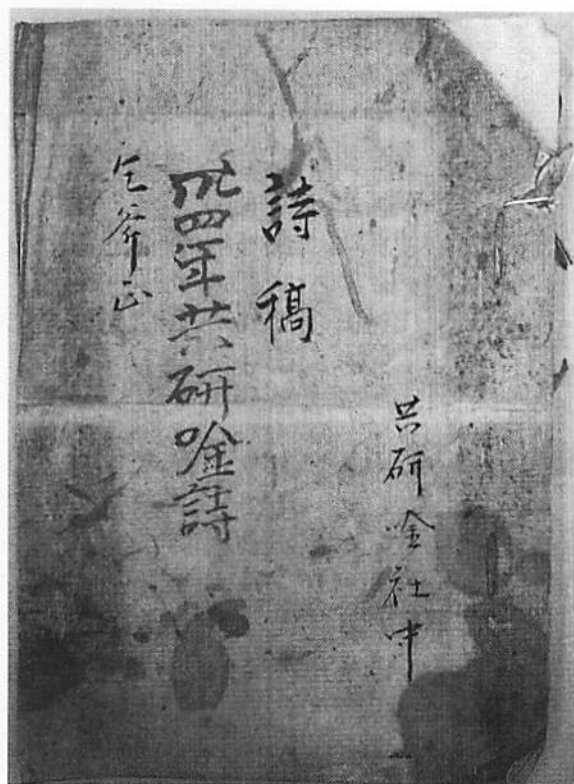 共研唫社中
詩稿
卅四年共研唫詩
乞斧正